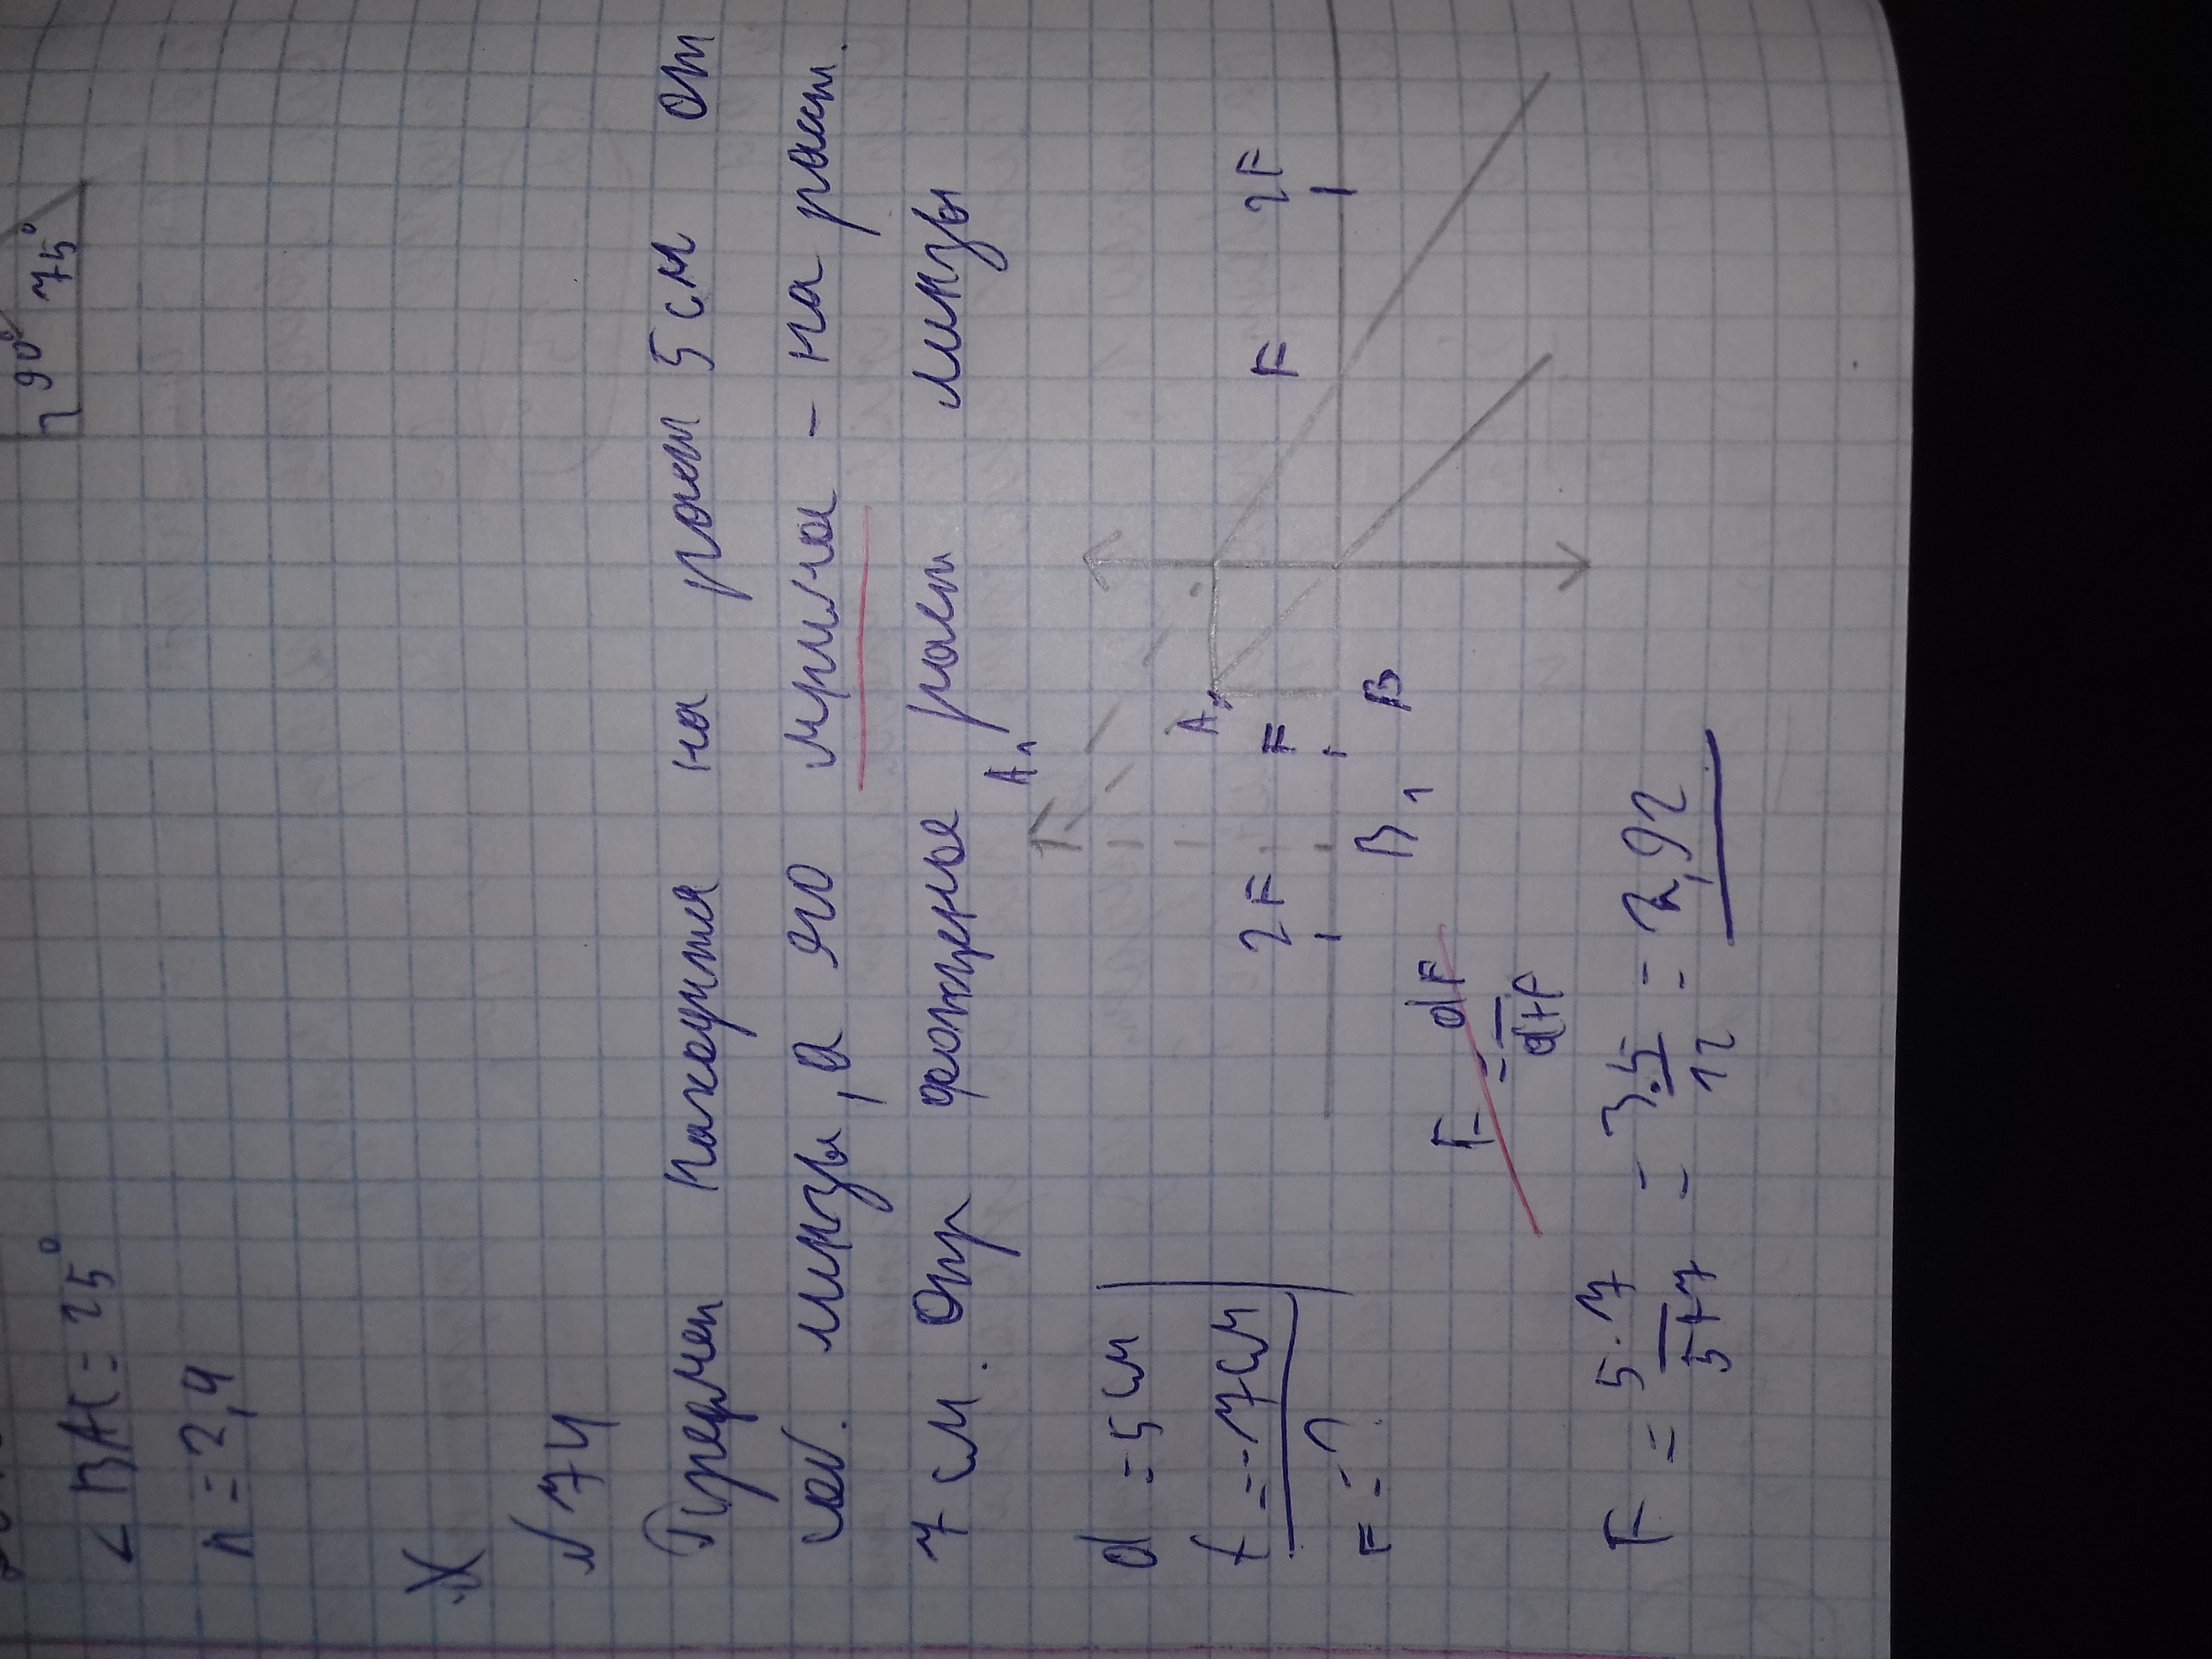 90° 75°
∠BAC = 25°
n = 2,4
№74
Предмет находится на раст 5 см от
соб. линзы, а его мнимое - на расст.
7 см. Опр фокусное расст линзы
d = 5 см
f = -7 см
F = ?
A₁
A
2F F F 2F
B₁ B
F = dF / d+F
F = 5·7 / 5+7 = 35 / 12 = 2,92